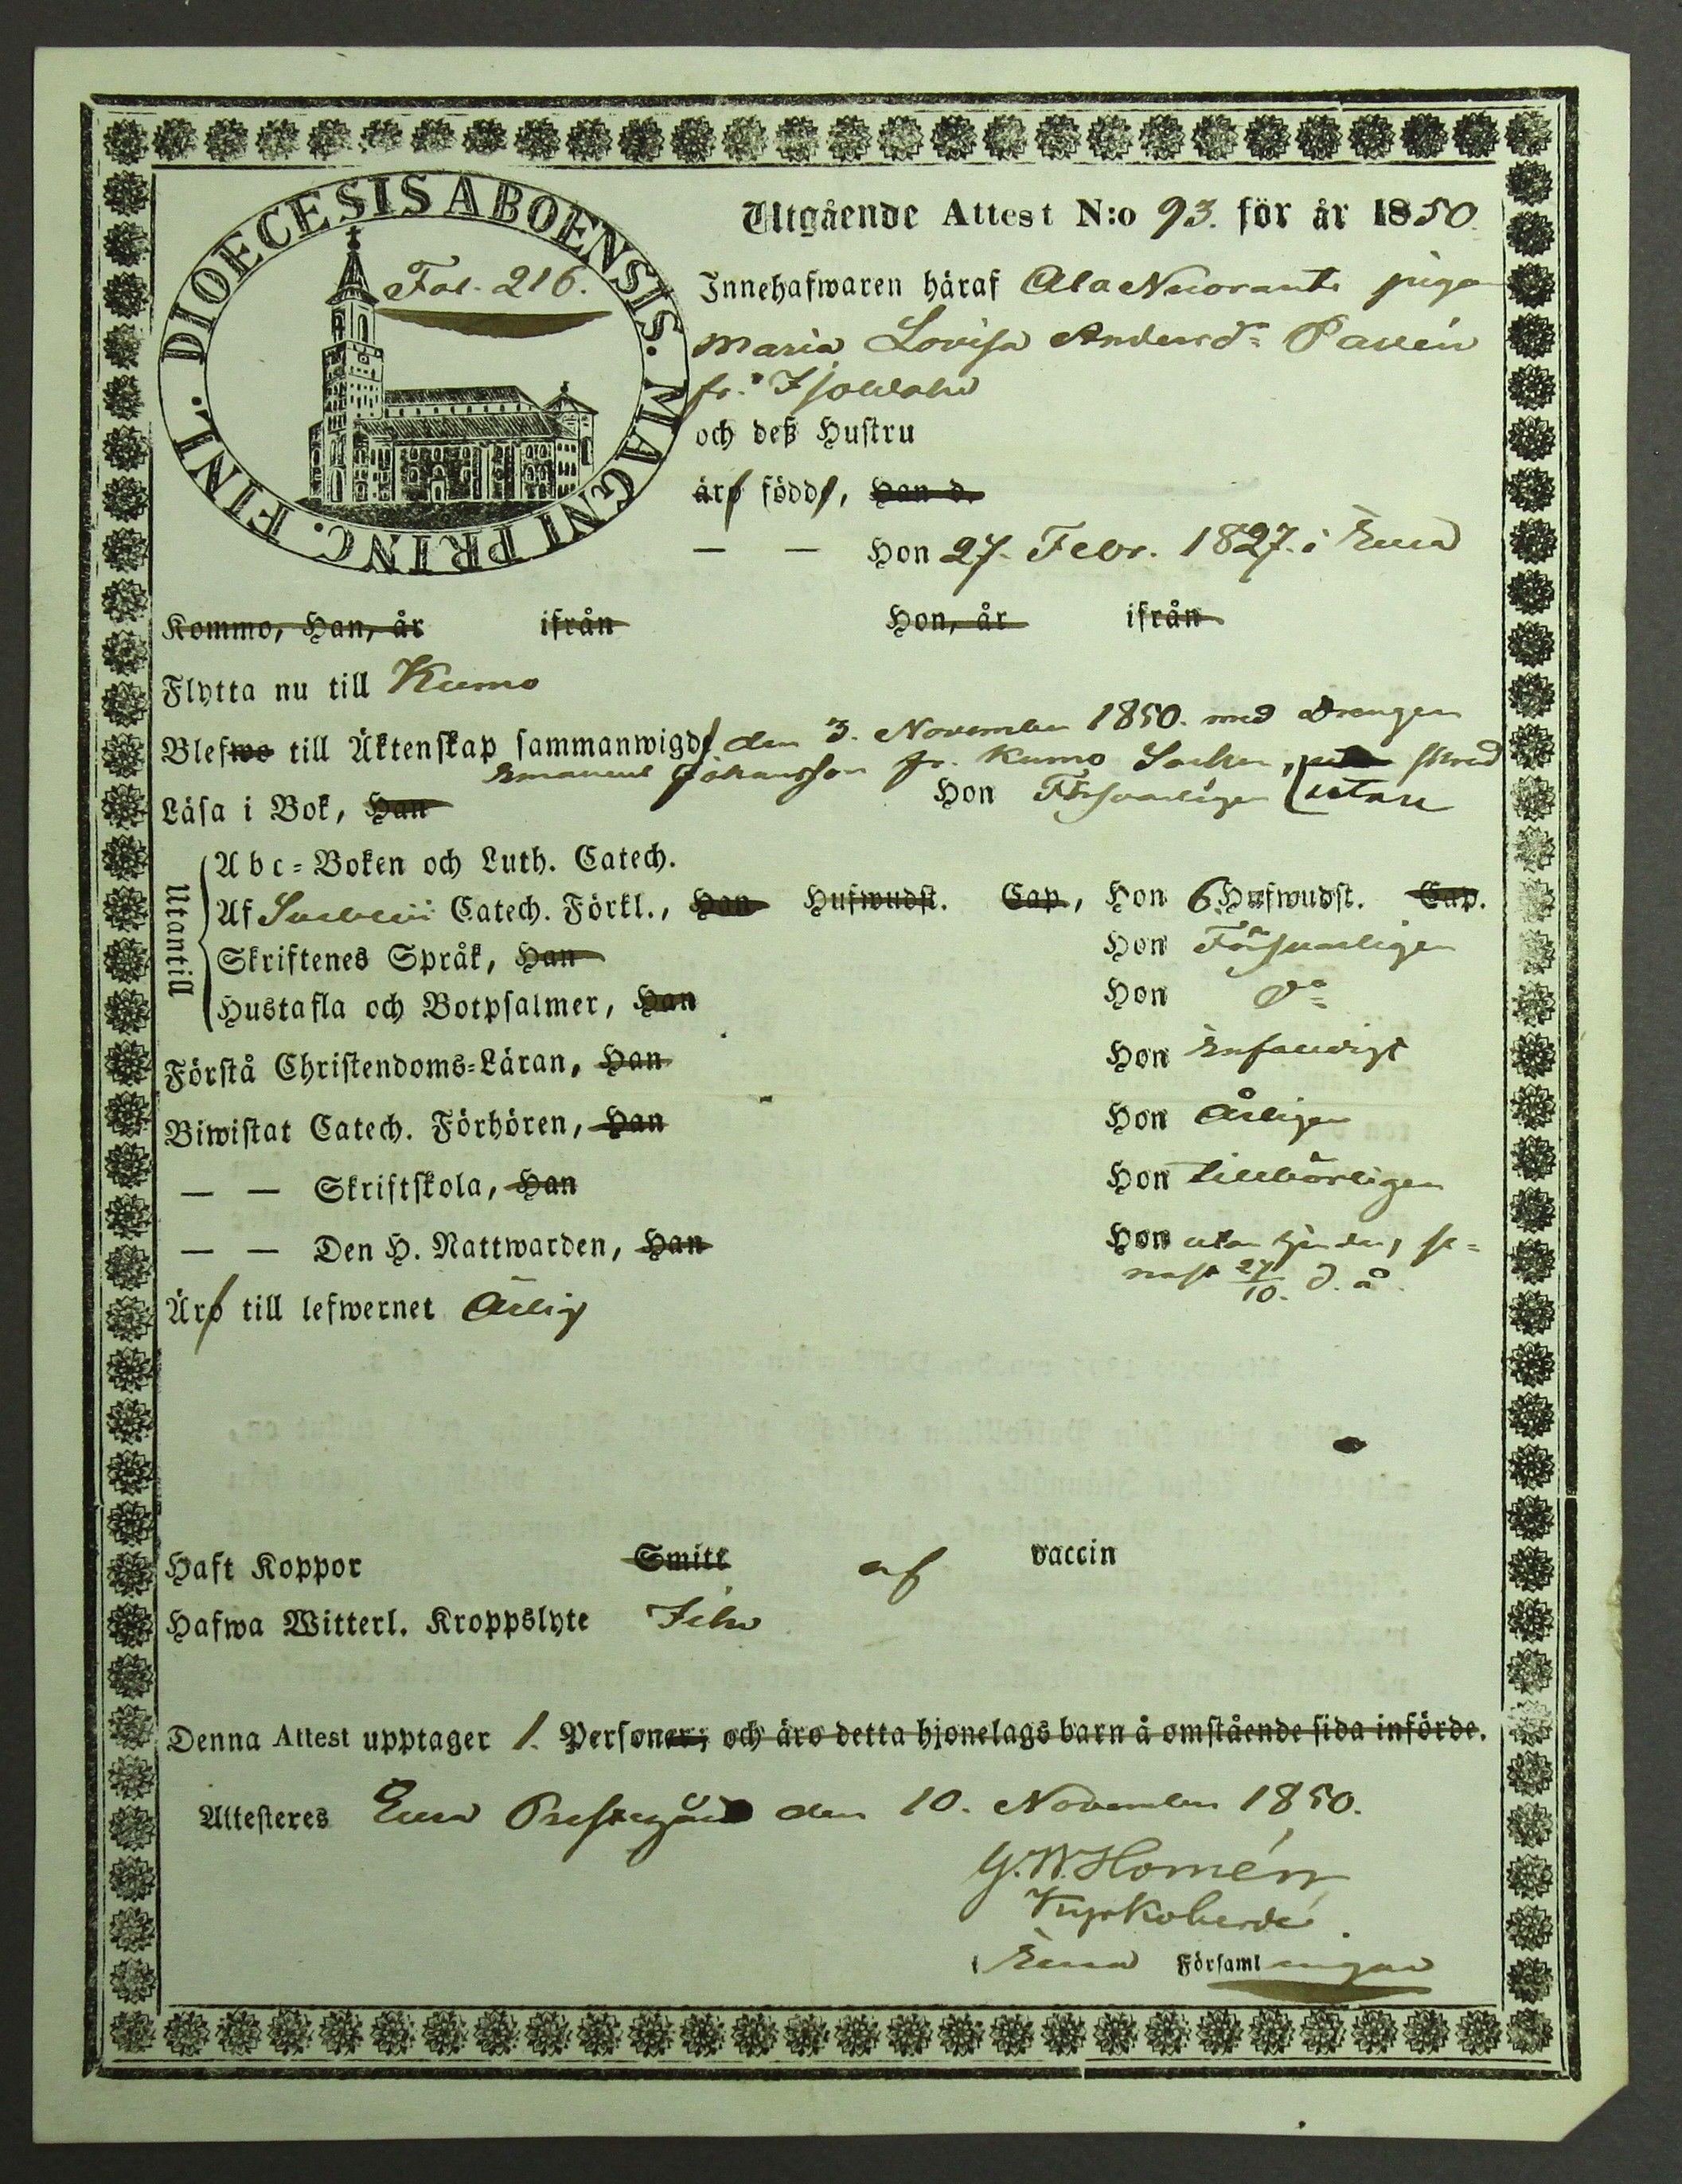 DIOECESIS ABOENSIS. MAGNI PRINC. FINL.
Fol. 216.
Utgående Attest N:o 93. för år 1850.
Innehafwaren häraf Ala Nuoranti piga
Maria Lovisa Andersd:
fr:
och deß Hustru
äro född, Han d.
— — Hon 27. Febr. 1827. i Eura
Kommo, Han, år ifrån Hon, år ifrån
Flytta nu till Kumo
Blefwo till Äktenskap sammanwigd den 3. November 1850. med Drengen
Emanuel Johansson fr. Kumo Socken,
Läsa i Bok, Han Hon Försvarligen utan
Utantill
Abc-Boken och Luth. Catech.
Af Svebelii Catech. Förkl., Han Hufwudst. Cap., Hon 6 Hufwudst. Cap.
Skriftenes Språk, Han Hon Försvarligen
Hustafla och Botpsalmer, Han Hon d:o
Förstå Christendoms-Läran, Han Hon Enfaldigt
Biwistat Catech. Förhören, Han Hon Årligen
— — Skriftskola, Han Hon tillbörligen
— — Den H. Nattwarden, Han Hon utan hinder, se-
nast 27/10. d. å.
Äro till lefwernet Ärlig
Haft Koppor Smitt af vaccin
Hafwa Witterl. Kroppslyte Icke
Denna Attest upptager 1. Personer; och äro detta hjonelags barn å omstående sida införde.
Attesteres Eura Prestegård den 10. November 1850.
G. W. Homén
Kyrkoherde
i Eura Församlingar